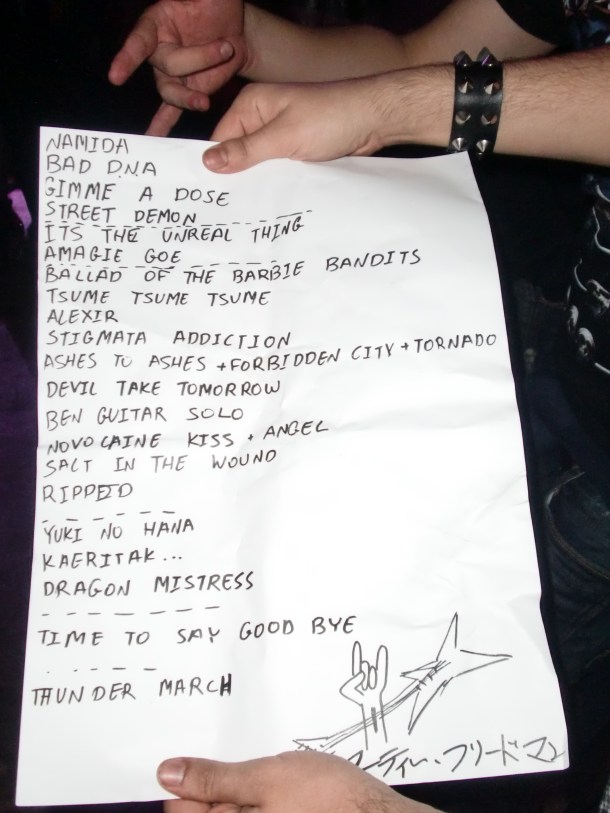 NAMIDA
BAD DNA
GIMME A DOSE
STREET DEMON
ITS THE UNREAL THING
AMAGIE GOE
BALLAD OF THE BARBIE BANDITS
TSUME TSUME TSUME
ALEXIR
STIGMATA ADDICTION
ASHES TO ASHES + FORBIDDEN CITY + TORNADO
DEVIL TAKE TOMORROW
BEN GUITAR SOLO
NOVOCAINE KISS + ANGEL
SALT IN THE WOUND
RIPPED
YUKI NO HANA
KAERITAK...
DRAGON MISTRESS
TIME TO SAY GOOD BYE
THUNDER MARCH
マーティー・フリードマン